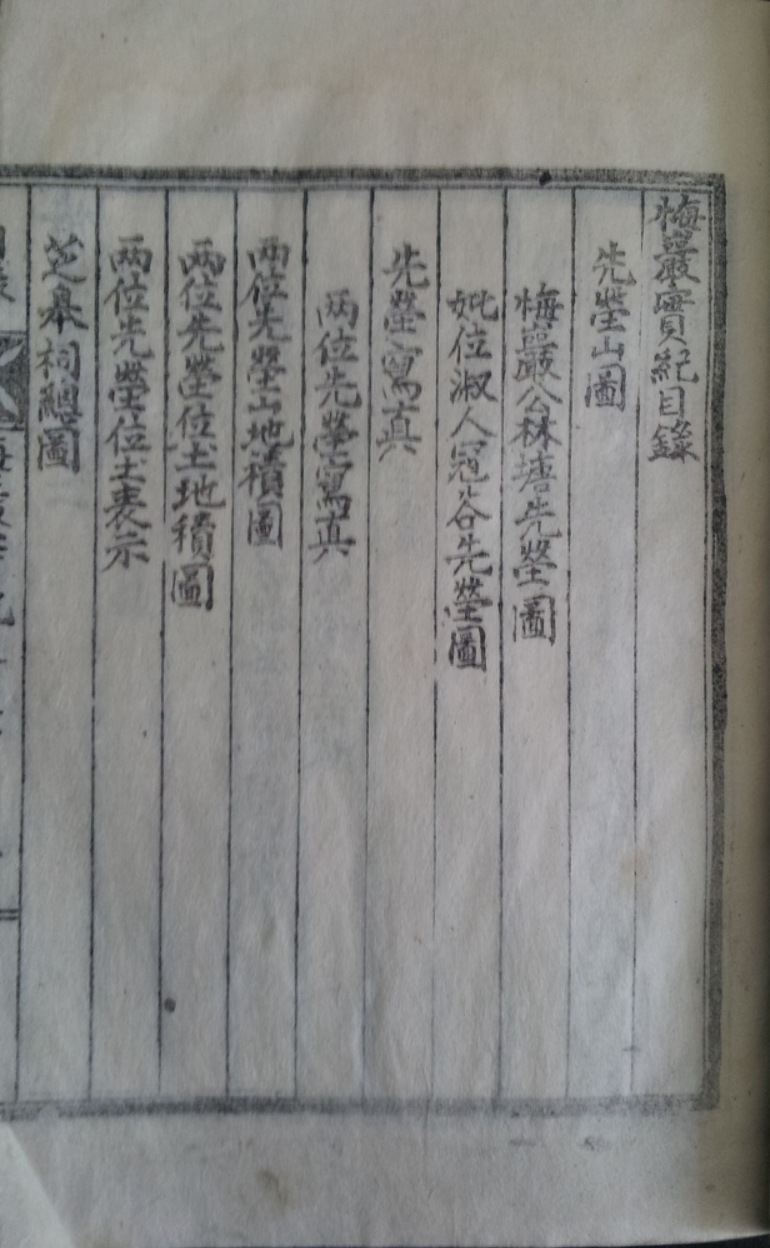 梅巖實紀目錄
先塋山圖
梅巖公林塘先塋圖
妣位淑人冠谷先塋圖
先塋寫真
兩位先塋寫真
兩位先塋山地積圖
兩位先塋位土地積圖
兩位先塋位土表示
芝皐祠總圖